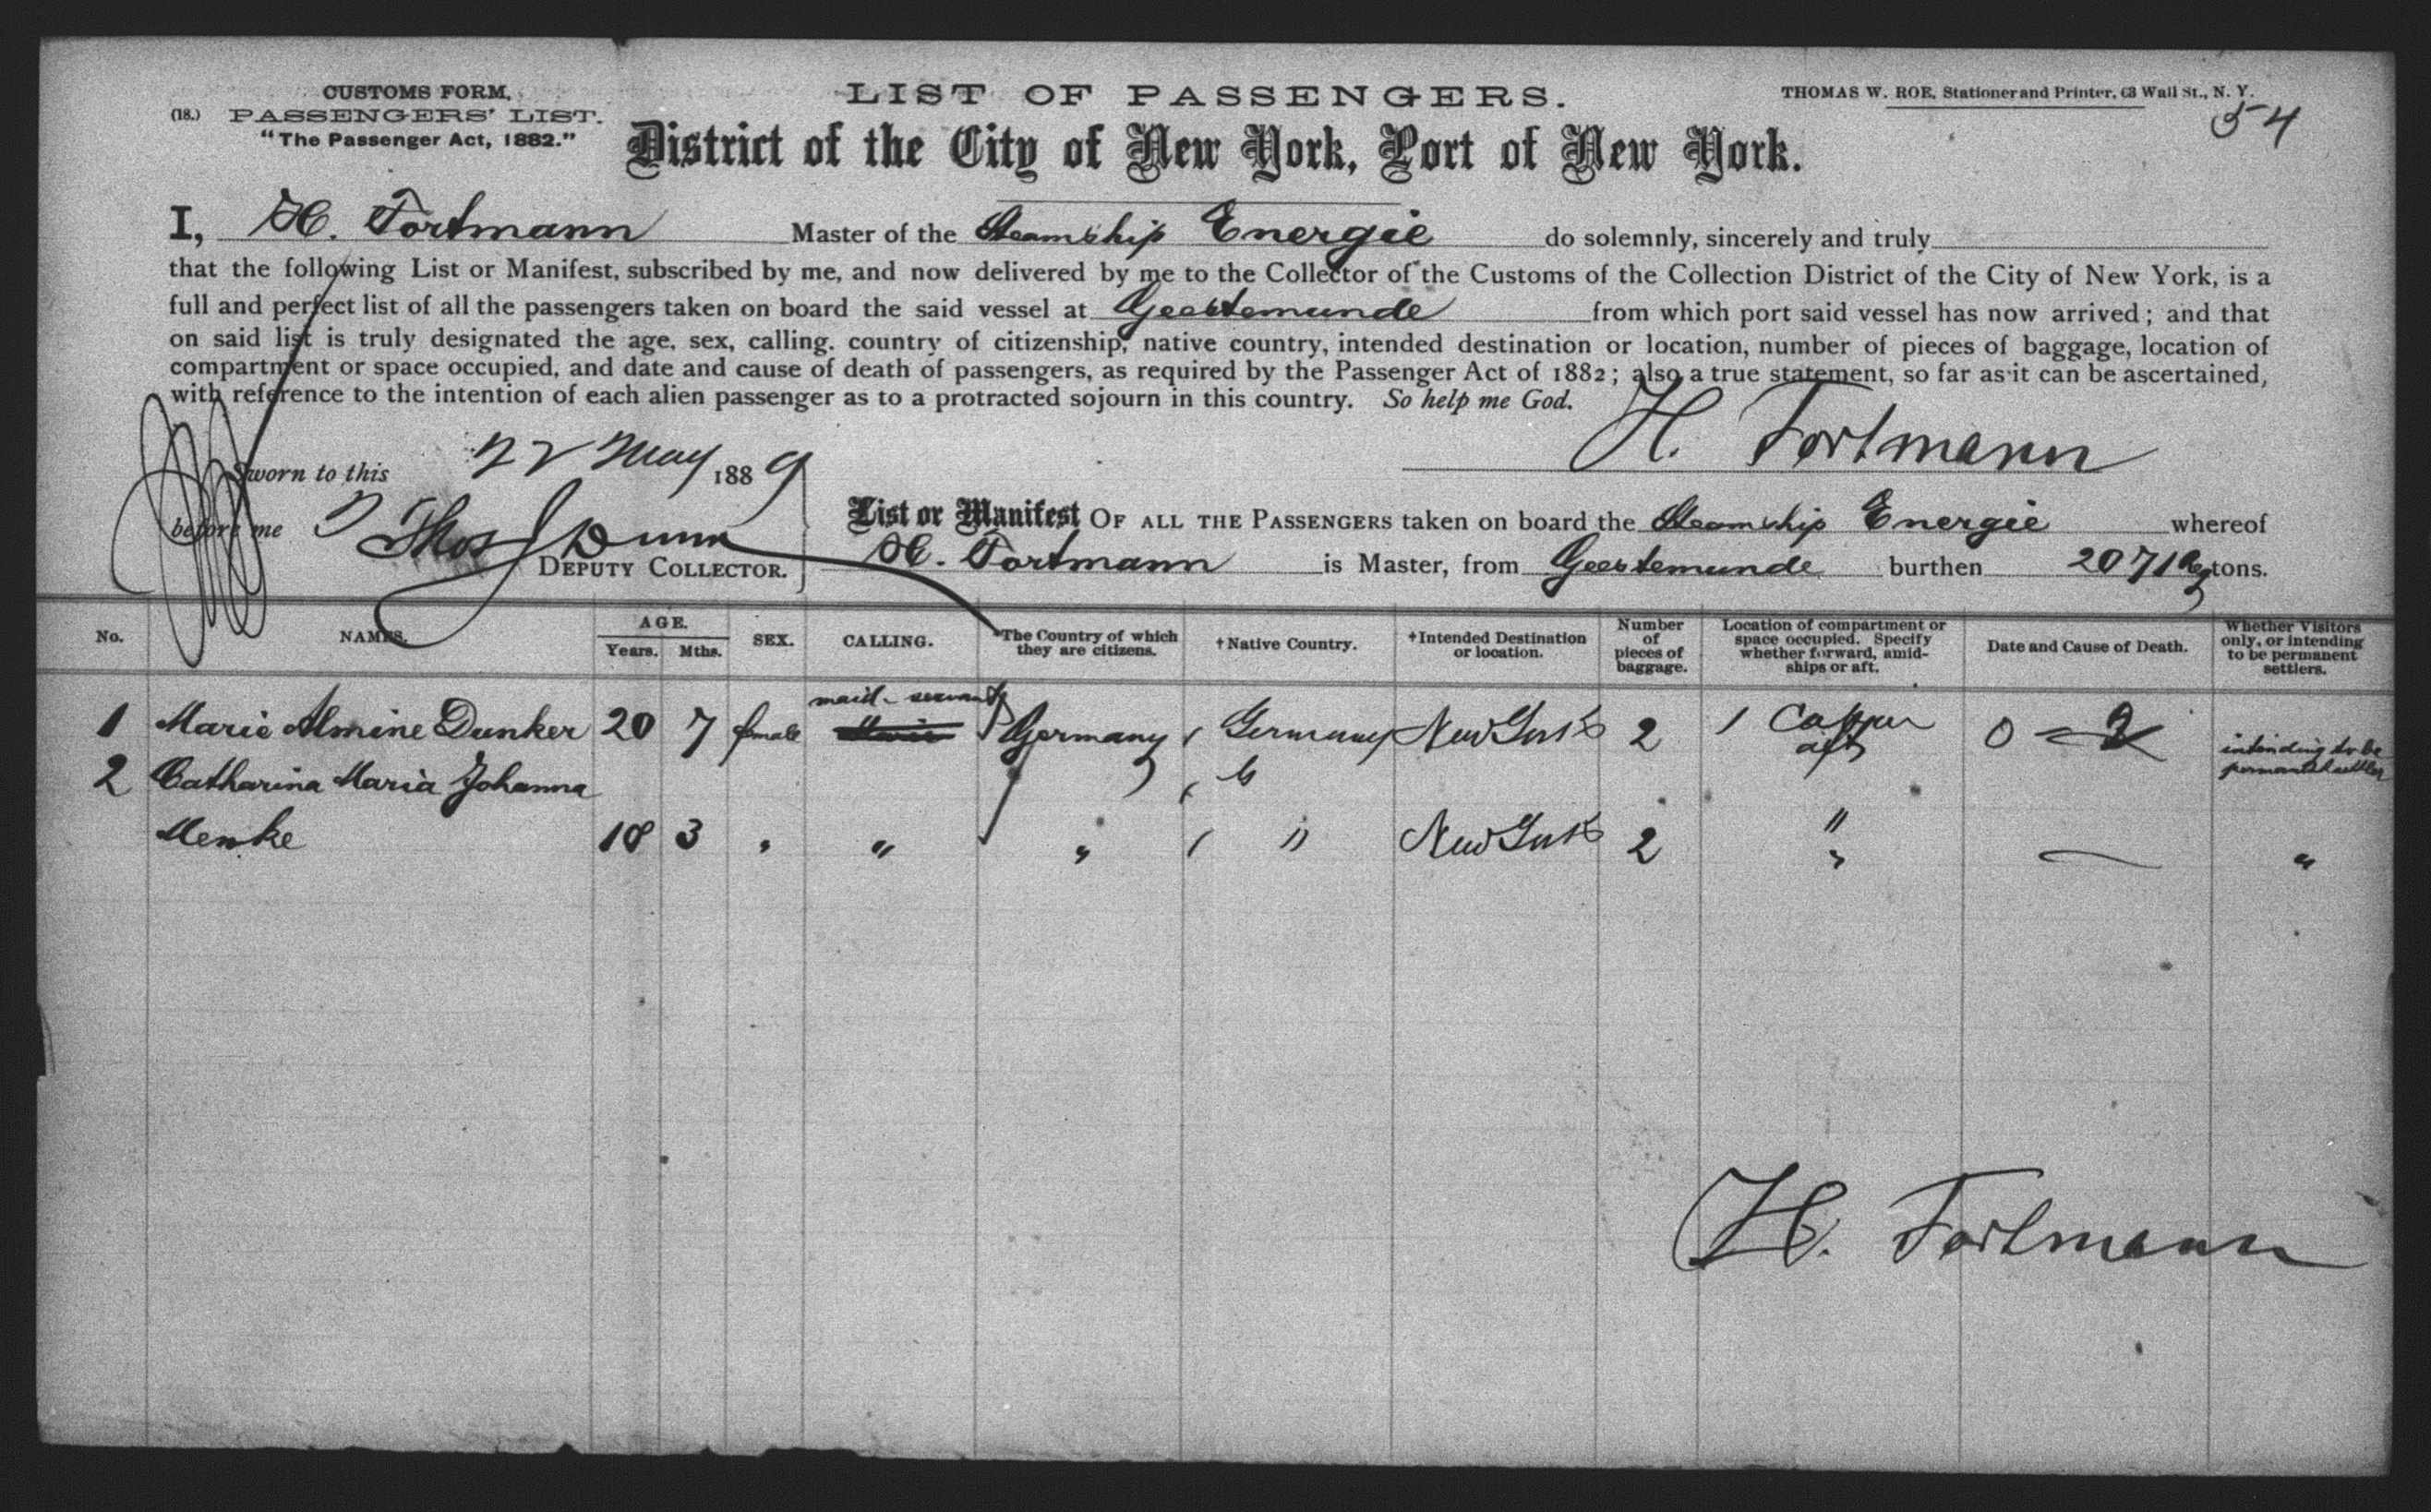 CUSTOMS FORM,
(18.) PASSENGERS' LIST.
"The Passenger Act, 1882."
LIST OF PASSENGERS.
THOMAS W. ROE, Stationer and Printer, 63 Wall St., N. Y.
54
District of the City of New York, Port of New York.
I, H. Fortmann Master of the Steamship Energie do solemnly, sincerely and truly
that the following List or Manifest, subscribed by me, and now delivered by me to the Collector of the Customs of the Collection District of the City of New York, is a
full and perfect list of all the passengers taken on board the said vessel at Geestemunde from which port said vessel has now arrived; and that
on said list is truly designated the age, sex, calling. country of citizenship, native country, intended destination or location, number of pieces of baggage, location of
compartment or space occupied, and date and cause of death of passengers, as required by the Passenger Act of 1882; also a true statement, so far as it can be ascertained,
with reference to the intention of each alien passenger as to a protracted sojourn in this country. So help me God.
H. Fortmann
Sworn to this 22 May 1889
before me Thos J Dunn
DEPUTY COLLECTOR.
List or Manifest OF ALL THE PASSENGERS taken on board the Steamship Energie whereof
H. Fortmann is Master, from Geestemunde burthen 2071 Reg tons.
No. NAMES. AGE. Years. Mths. SEX. CALLING. *The Country of which they are citizens. †Native Country. †Intended Destination or location. Number of pieces of baggage. Location of compartment or space occupied. Specify whether forward, amidships or aft. Date and Cause of Death. Whether Visitors only, or intending to be permanent settlers.
maid-servant
1 Marie Almine Dunker 20 7 female Germany Germany New York 2 1 aft 0 intending to be permanent settler
2 Catharina Maria Johanna
Menke 18 3 " " " " New York 2 " "
H. Fortmann